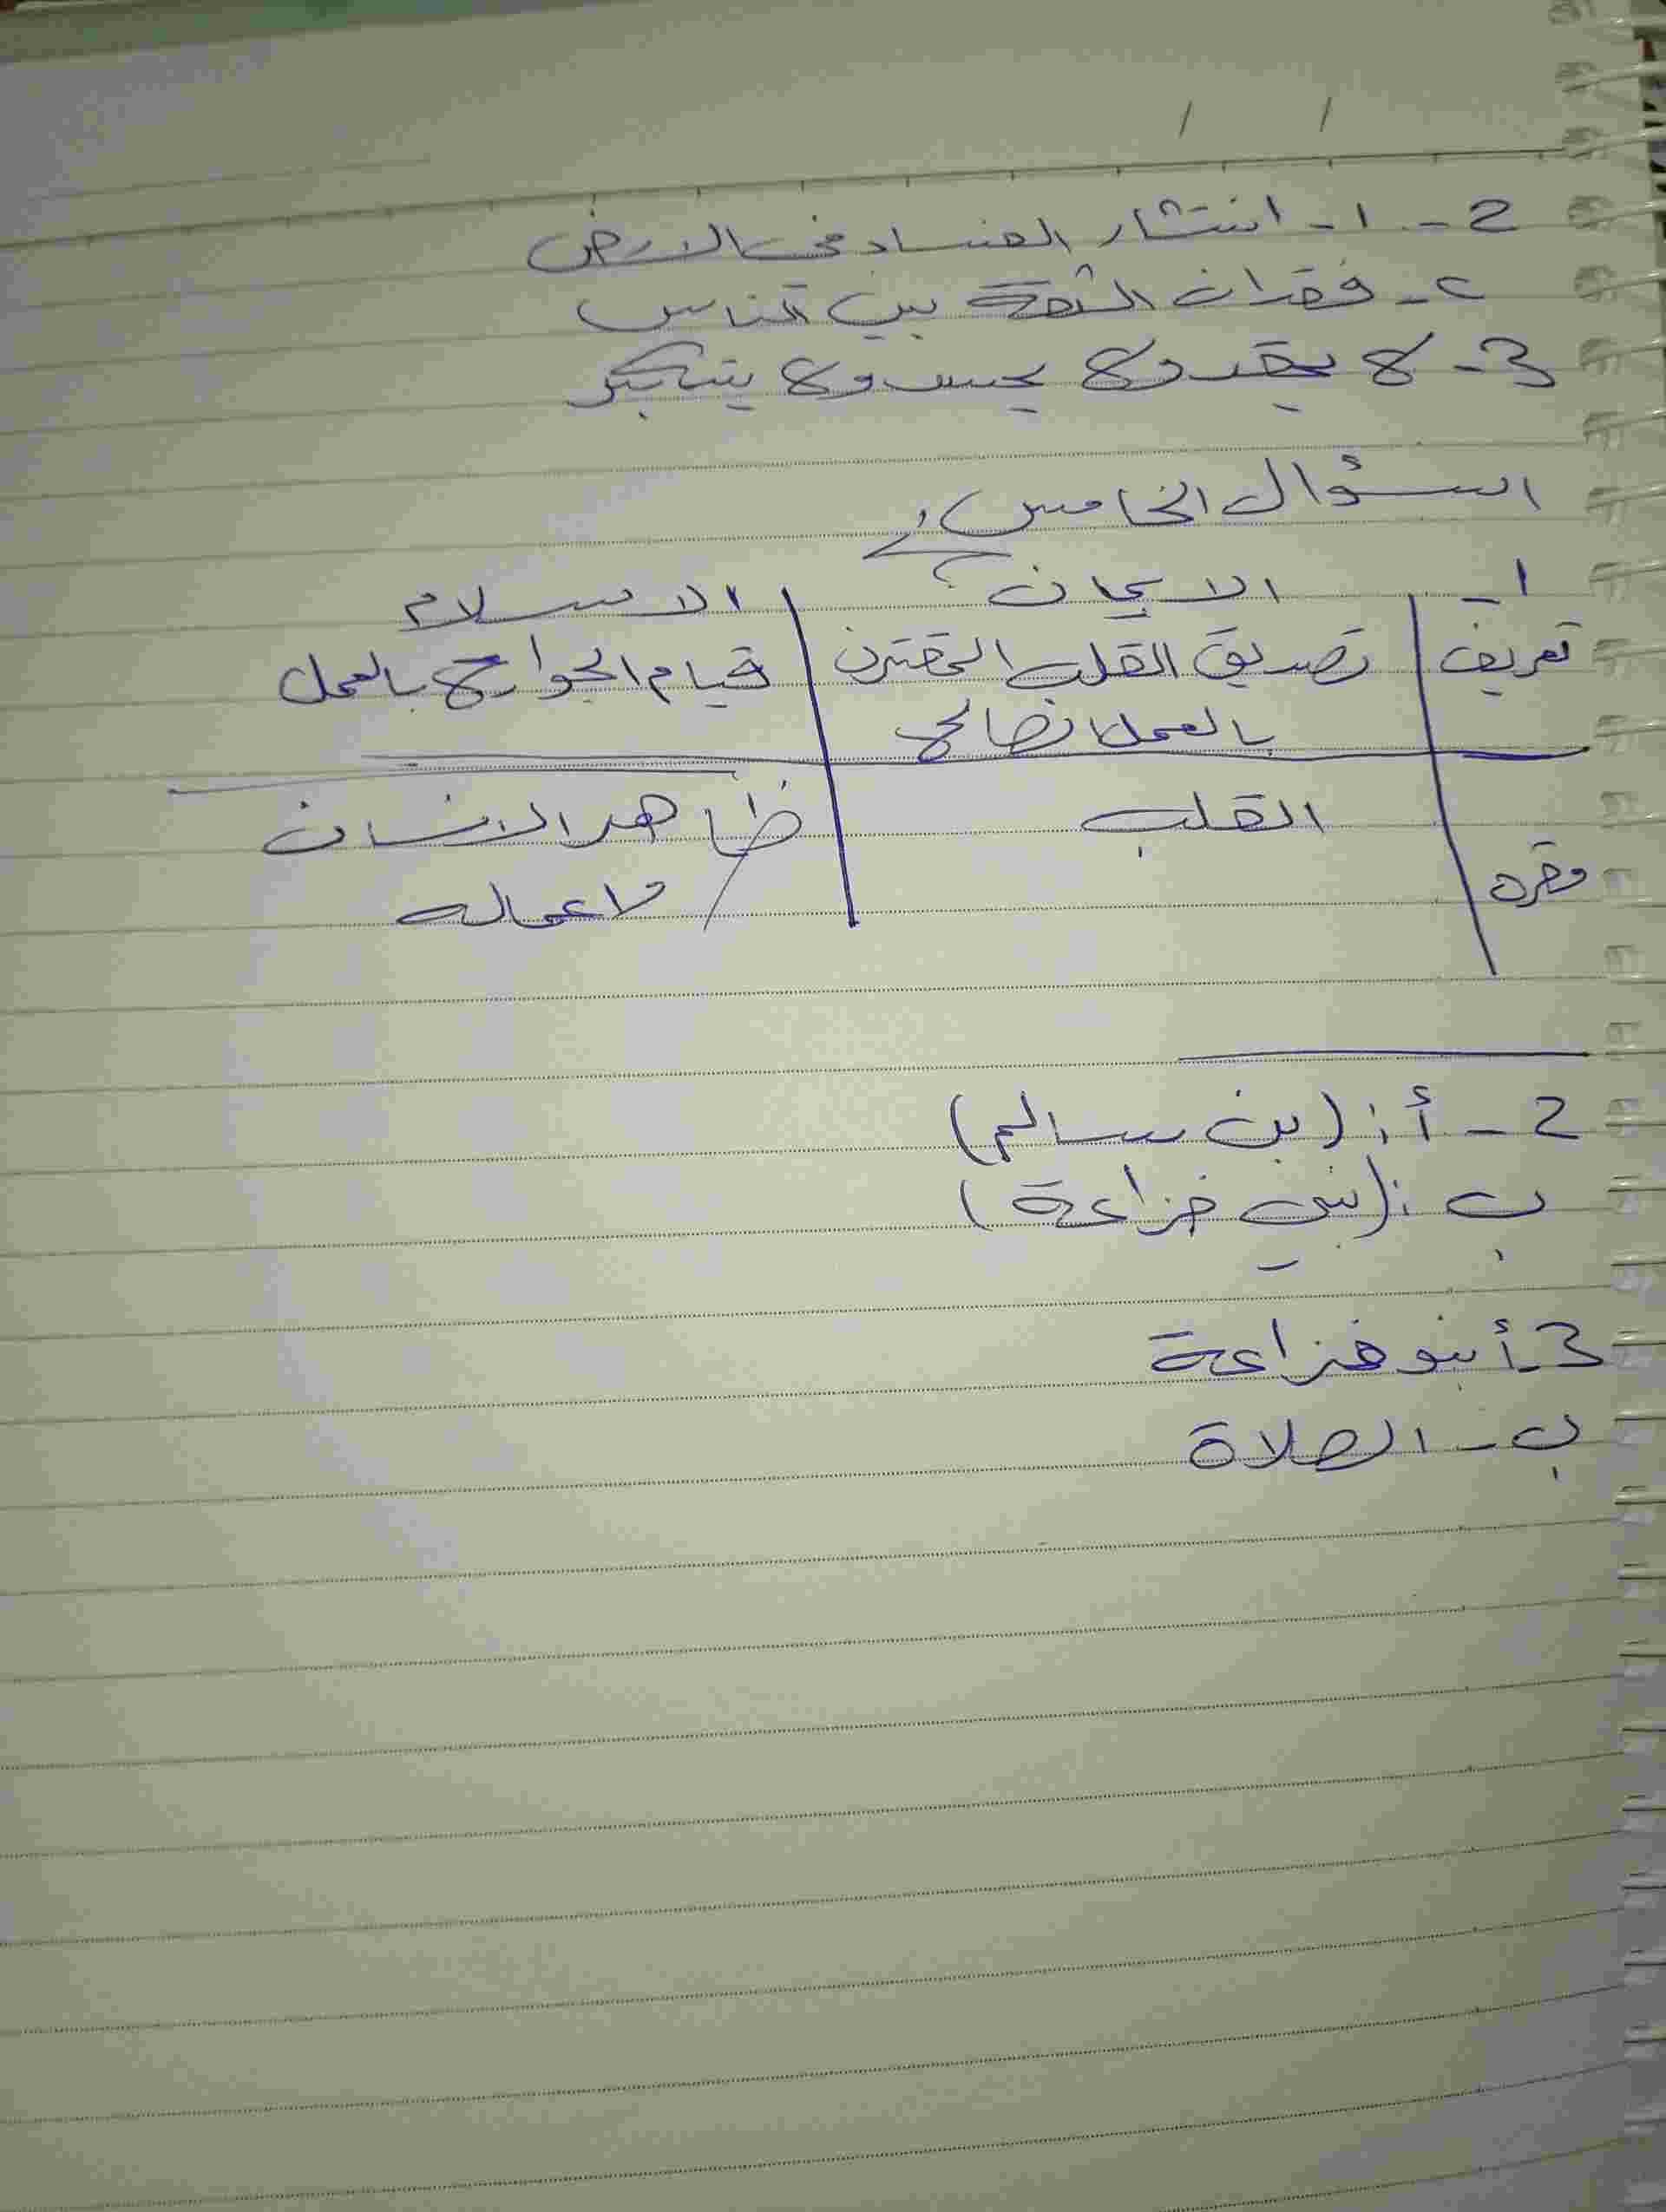 2 - ١ - انتشار الفساد في الارض
٢ - فقدان الثقة بين الناس
3 - لا يحقد ولا يحسد ولا يتكبر
السؤال الخامس
١ - الايمان الاسلام
تعريف تصديق القلب المقترن قيام الجوارح بالعمل
بالعمل الصالح
القلب ظاهر الانسان
مقره
واعماله
2 - أ : (بن سالم)
ب : (بني خزاعة)
3 - أ بنو خزاعة
ب - الصلاة